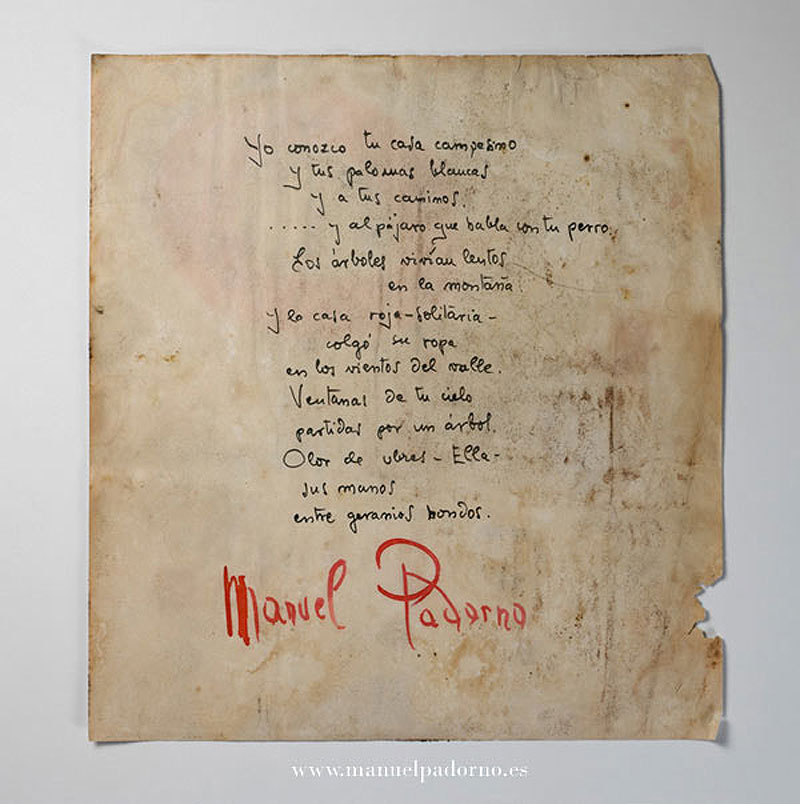 Yo conozco tu casa campesino
y tus palomas blancas
y a tus caminos.
..... y al pájaro que habla con tu perro.
Los árboles vivían lentos
en la montaña.
Y la casa roja-solitaria-
colgó su ropa
en los vientos del valle.
Ventanas de tu cielo
partidas por un árbol.
Olor de ubres - Ella-
sus manos
entre geranios hondos.
Manuel Padorno
www.manuelpadorno.es